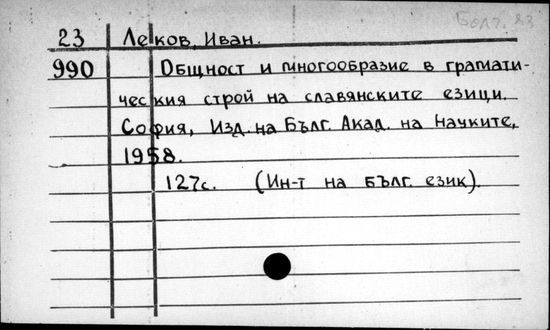 Болг. 23
23 Леков, Иван.
990 Общност и многообразие в грамати-
ческия строй на славянските езици.
София, Изд. на Бълг. Акад. на Науките,
1958.
127с. (Ин-т на бълг. език).